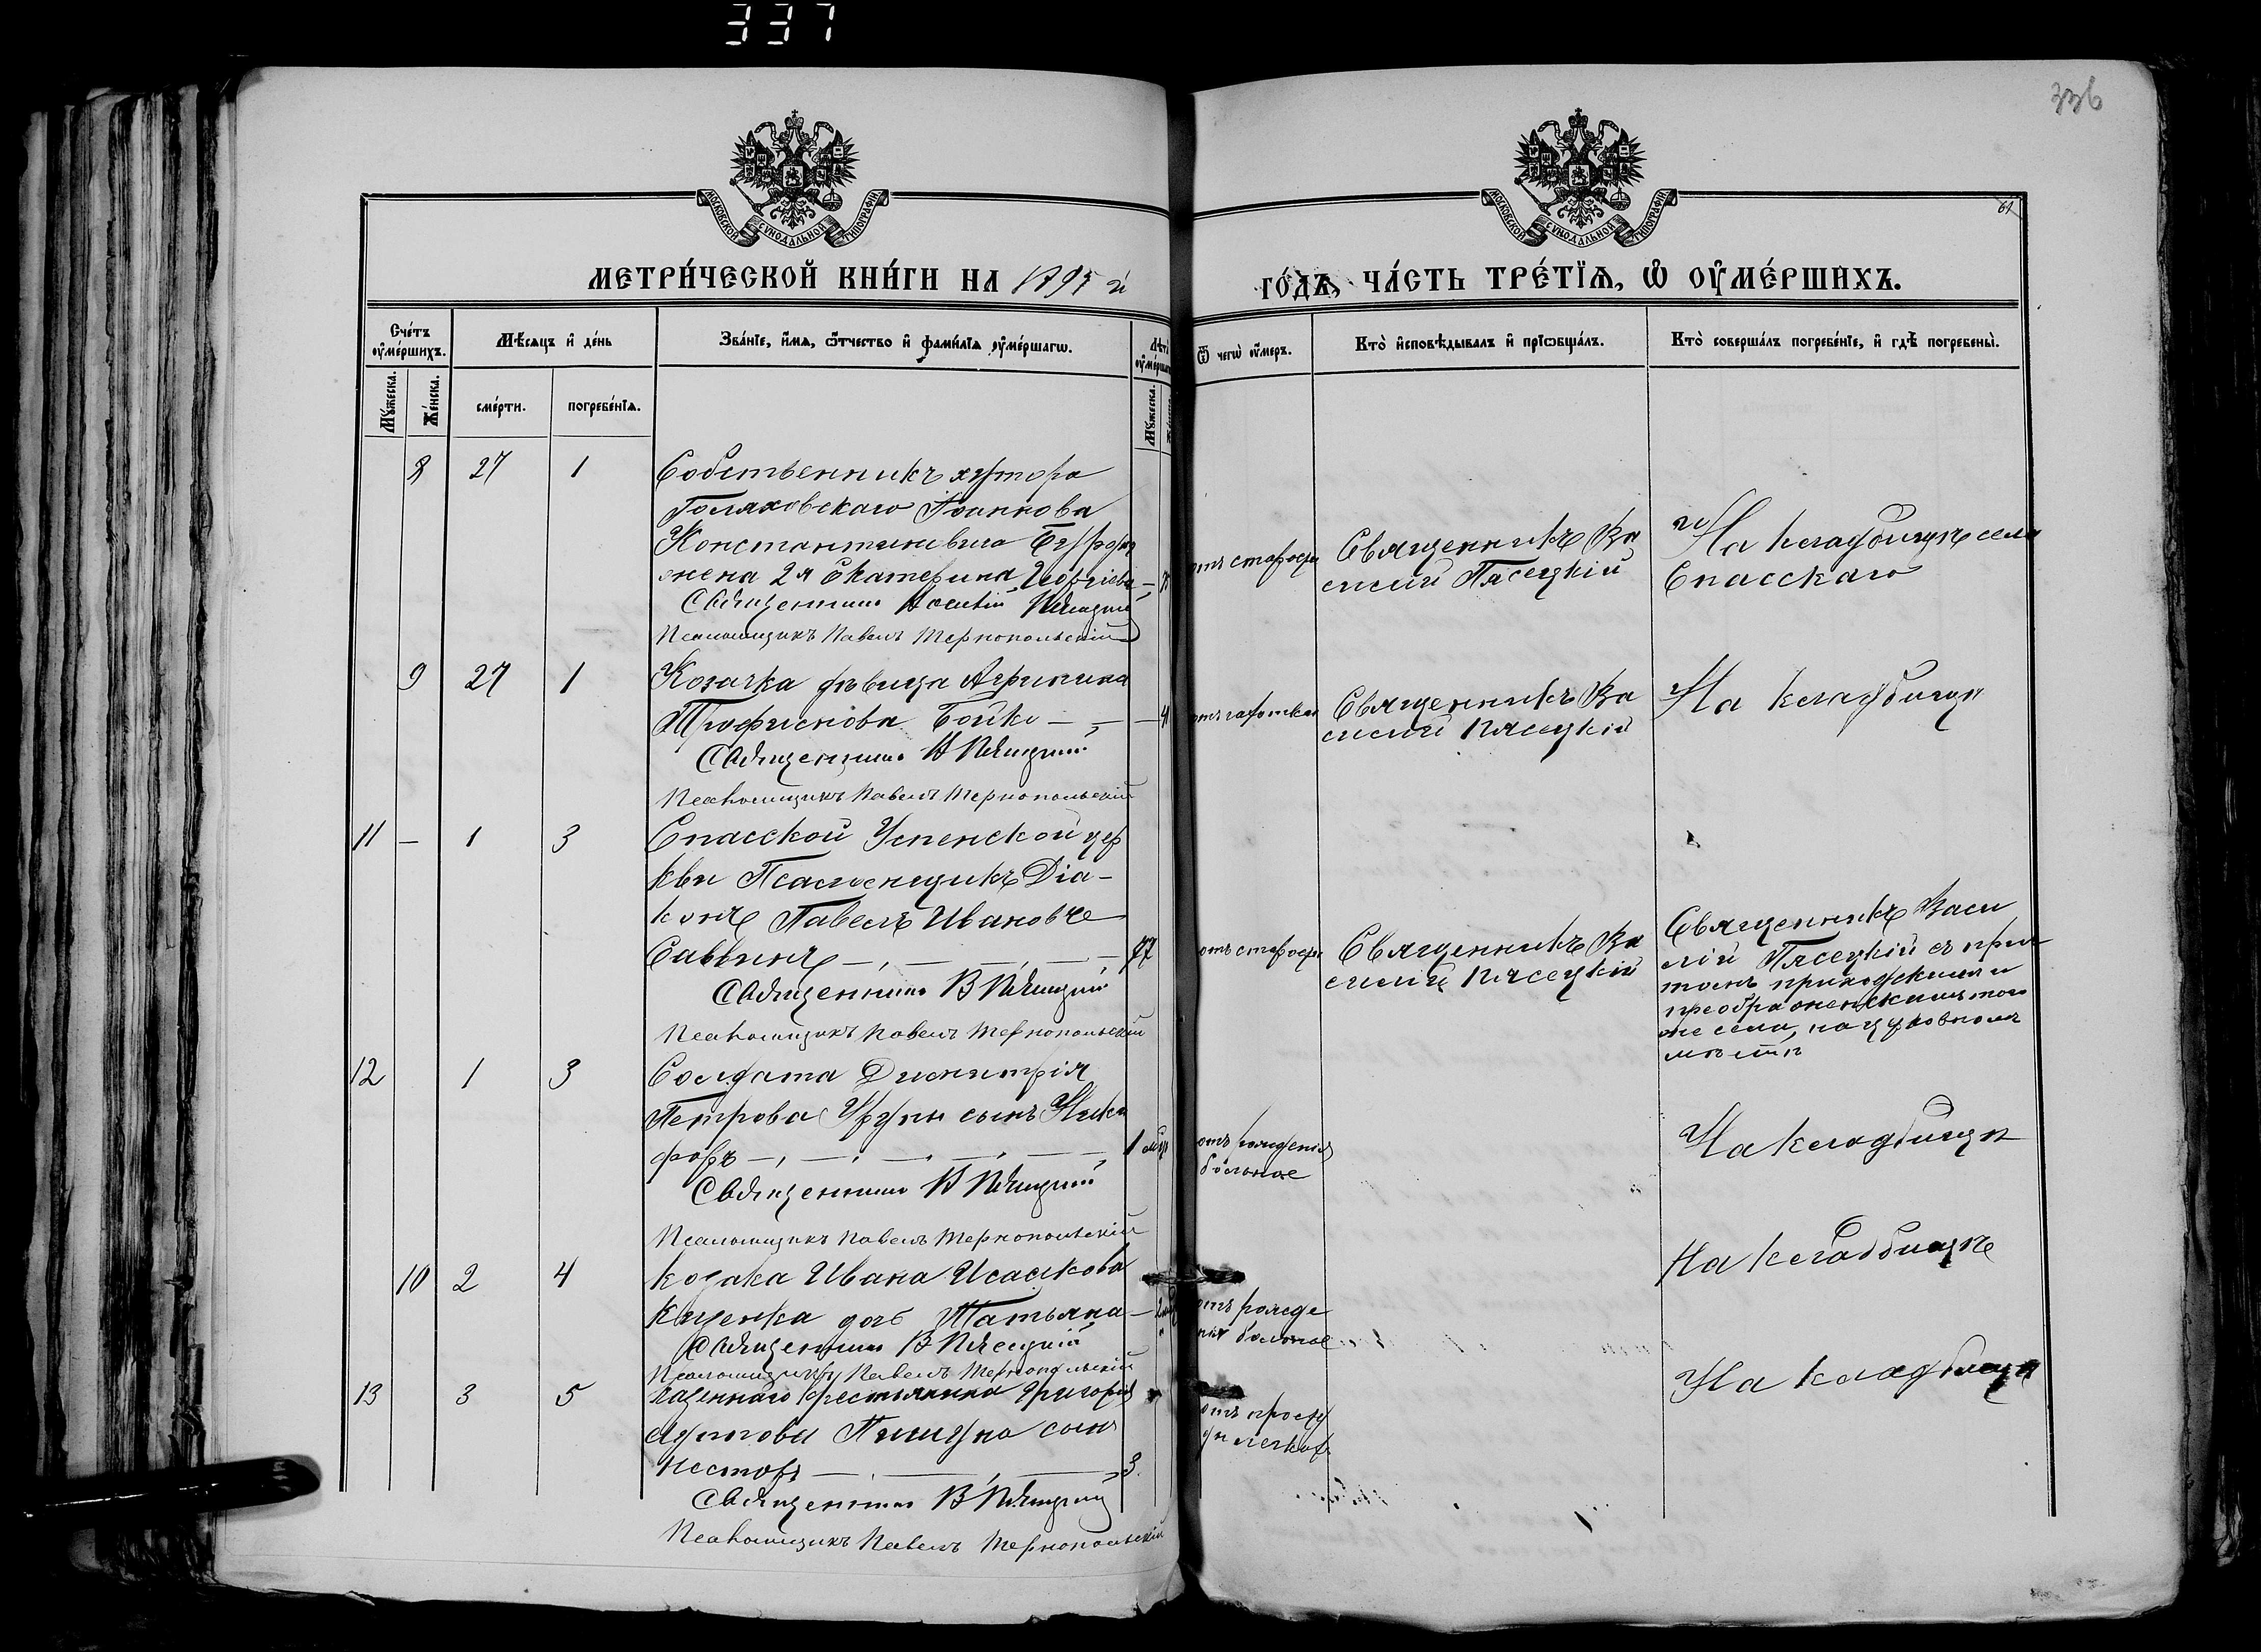 337
336
МОСКОВСКОЙ СУНОДАЛЬНОЙ ТИПОГРАФІИ
МОСКОВСКОЙ СУНОДАЛЬНОЙ ТИПОГРАФІИ
61
МЕТРИ́ЧЕСКОЙ КНИ́ГИ НА 1895 й
ГО́ДЪ, ЧА́СТЬ ТРЕ́ТЇѦ, Ѡ ОУМЕ́РШИХЪ.
Сче́тъ оуме́ршихъ.
Мѣ́сяцъ и де́нь
Зва́нїе, и́мѧ, ѻ́тчество и фами́лїѧ оуме́ршагѡ.
Лѣта оуме́ршаг
Ѿ чегѡ̀ оу́меръ.
Кто̀ и́сповѣ́дывалъ и прїѡбща́лъ.
Кто̀ соверша́лъ погребе́нїе, и гдѣ̀ погребены̀.
Му́жеска.
Же́нска.
сме́рти.
погребе́нїѧ.
Му́жеска.
8 27 1 Собственникъ хутора
Голяховскаго Іоаннова
Константиновича
жена 2я Екатерина Георгіева
Священникъ Василій Пясецкій
Псаломщикъ Павелъ Тернопольскій
отъ старости
Священникъ Ва
силій Пясецкій
На кладбищѣ села
Спасскаго
9 27 1 Козачка дѣвица Агрипина
Трофимова Бойко
Священникъ В Пясецкій
Псаломщикъ Павелъ Тернопольскій
Священникъ Ва
силій Пясецкій
На кладбищѣ
11 — 1 3 Спасской Успенской цер
кви Псаломщикъ Діа-
конъ Павелъ Ивановъ
Саввинъ 77
Священникъ В Пясецкій
Псаломщикъ Павелъ Тернопольскій
отъ старости
Священникъ Ва
силій Пясецкій
Священникъ Васи
лій Пясецкій съ прич
томъ приходскимъ и
преображенскимъ того
же села, на церковномъ
мѣстѣ
12 1 3 Солдата Димитрія
Петрова сынъ Ники
форъ 1 мѣц
Священникъ В Пясецкій
Псаломщикъ Павелъ Тернопольскій
отъ рожденія
больное
На кладбищѣ
10 2 4 козака Ивана Исаакова
Куценка дочь Татьяна
Священникъ В Пясецкій
Псаломщикъ Павелъ Тернопольскій
отъ рожде
нія больное
На кладбищѣ
13 3 5 казеннаго крестьянина Григорія
сынъ
Несторъ 3
Священникъ В Пясецкій
Псаломщикъ Павелъ Тернопольскій
отъ просту
ды легкихъ
На кладбищѣ